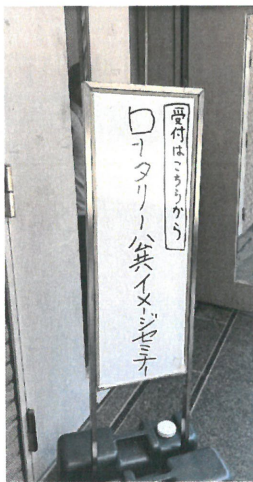 受付はこちらから
ロータリー公共イメージセミナー